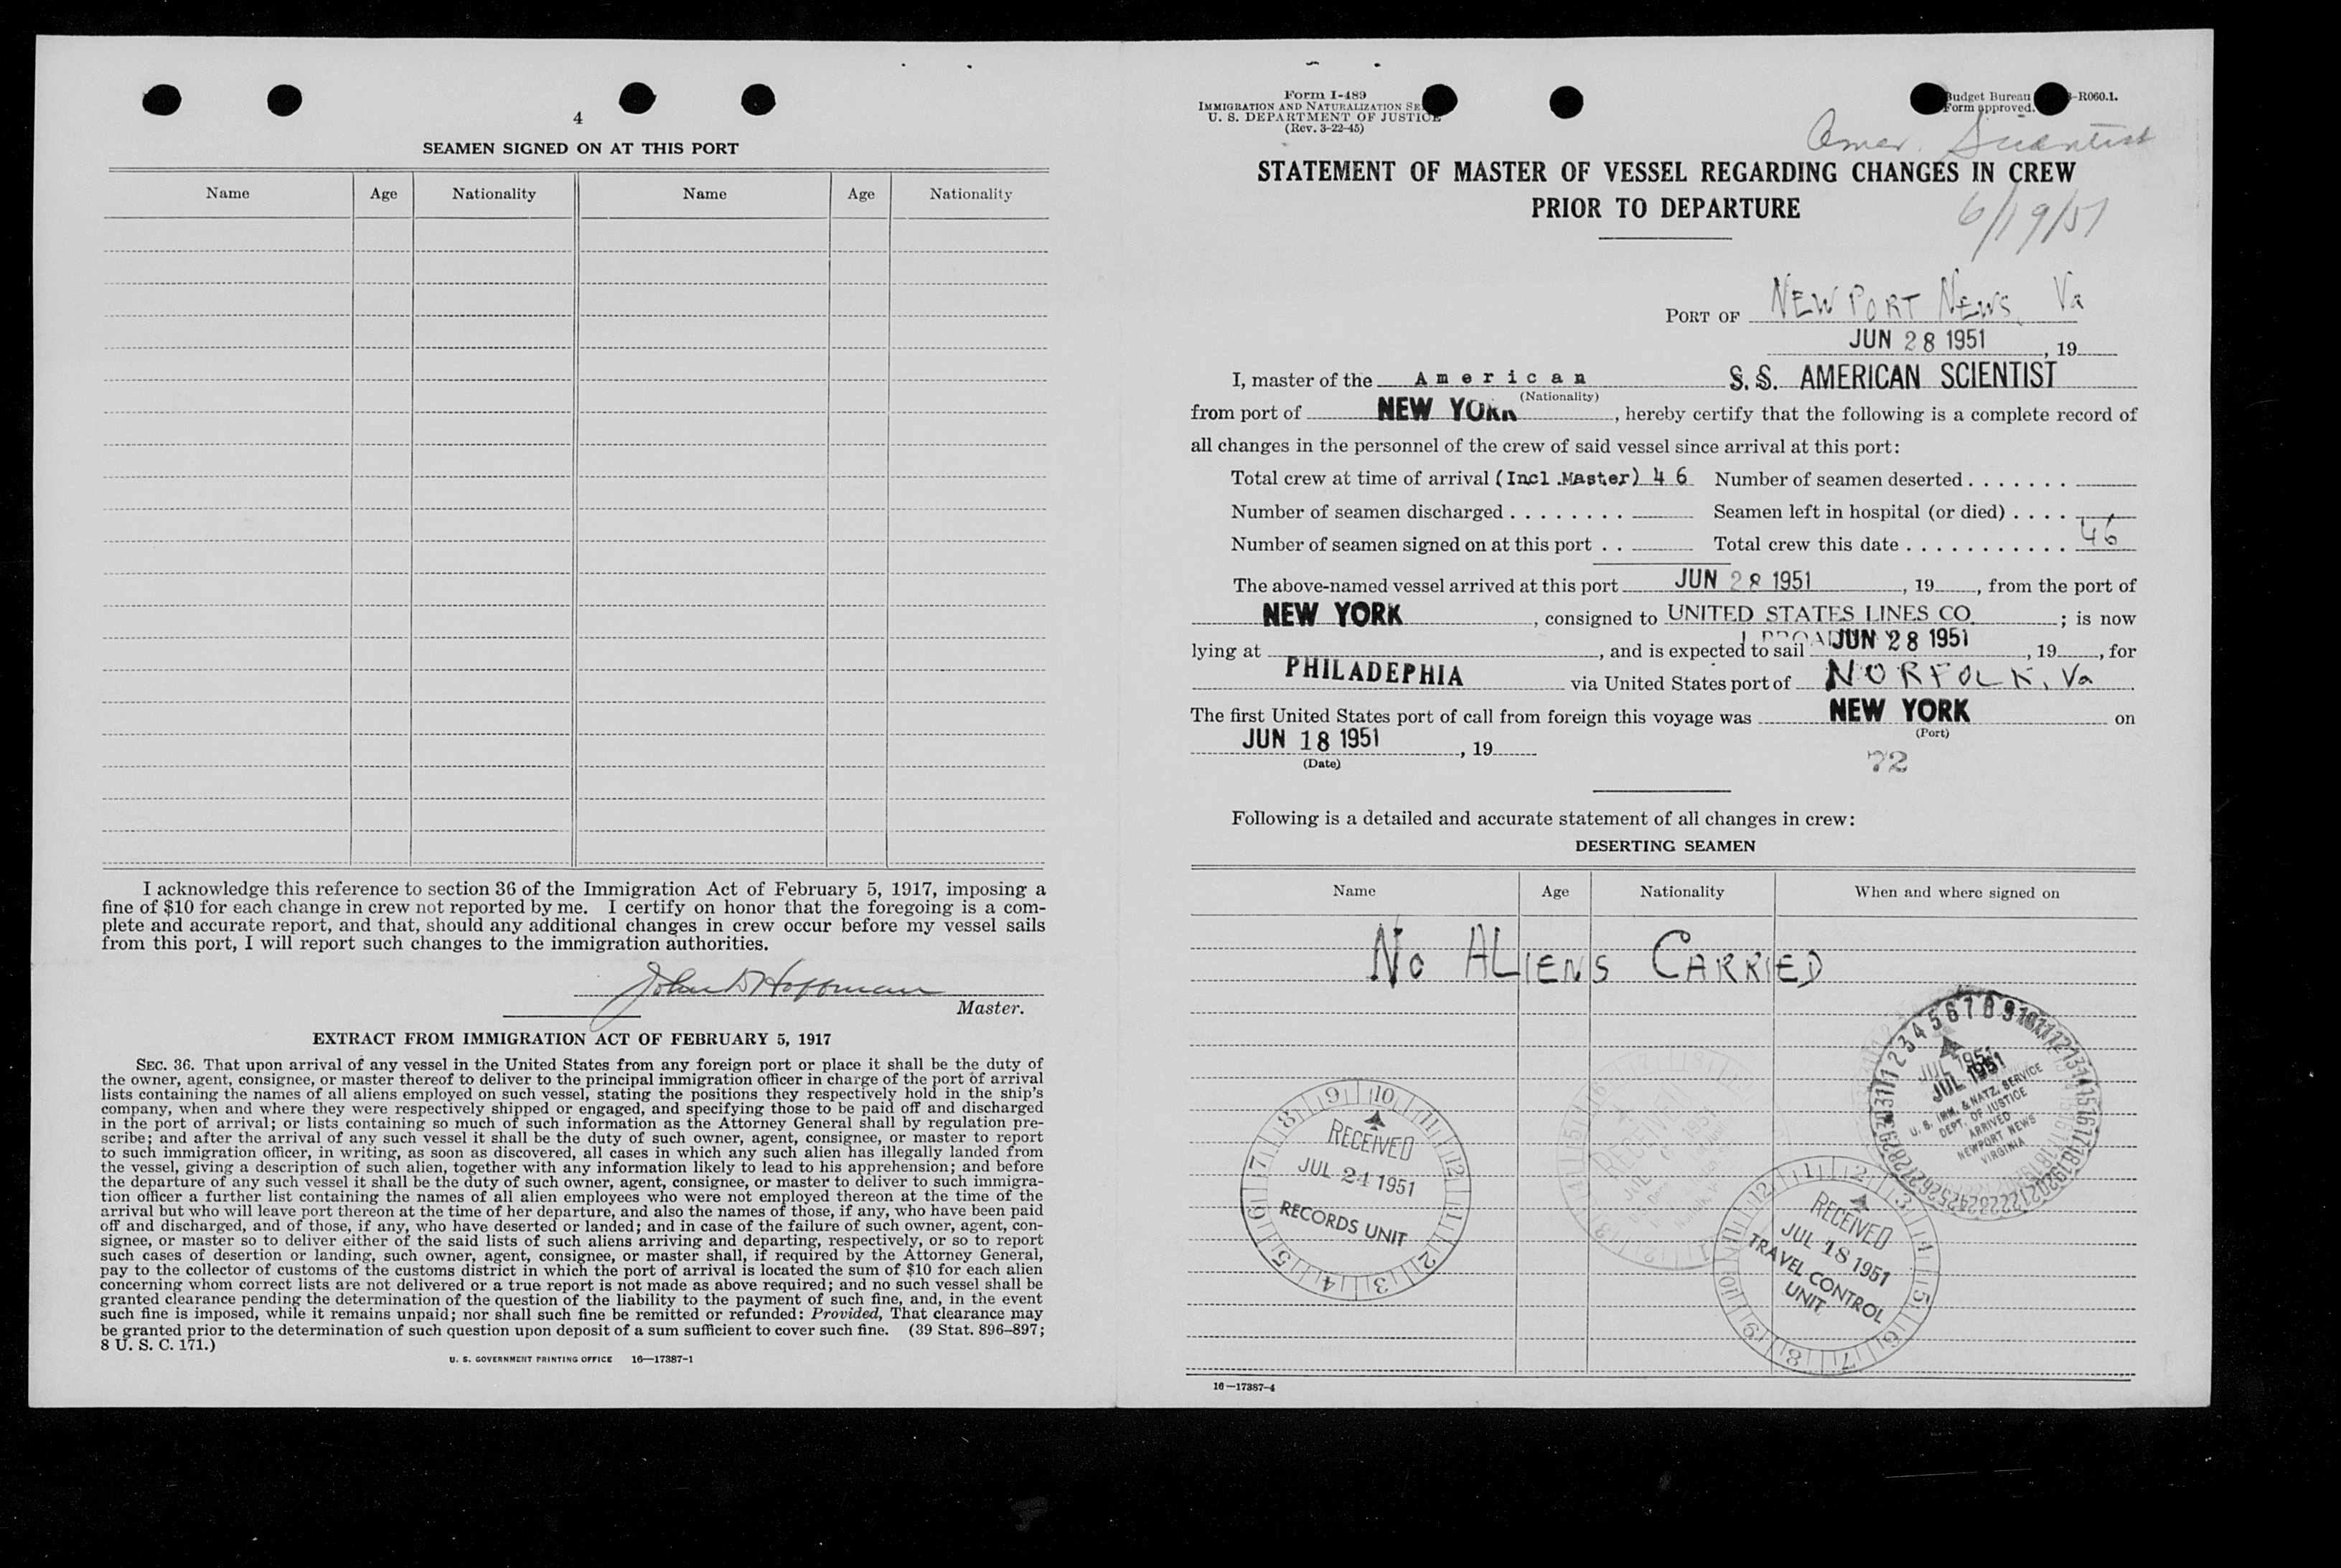 4
SEAMEN SIGNED ON AT THIS PORT
Name Age Nationality Name Age Nationality
I acknowledge this reference to section 36 of the Immigration Act of February 5, 1917, imposing a
fine of $10 for each change in crew not reported by me. I certify on honor that the foregoing is a com-
plete and accurate report, and that, should any additional changes in crew occur before my vessel sails
from this port, I will report such changes to the immigration authorities.
John D Hoffman
Master.
EXTRACT FROM IMMIGRATION ACT OF FEBRUARY 5, 1917
SEC. 36. That upon arrival of any vessel in the United States from any foreign port or place it shall be the duty of
the owner, agent, consignee, or master thereof to deliver to the principal immigration officer in charge of the port of arrival
lists containing the names of all aliens employed on such vessel, stating the positions they respectively hold in the ship's
company, when and where they were respectively shipped or engaged, and specifying those to be paid off and discharged
in the port of arrival; or lists containing so much of such information as the Attorney General shall by regulation pre-
scribe; and after the arrival of any such vessel it shall be the duty of such owner, agent, consignee, or master to report
to such immigration officer, in writing, as soon as discovered, all cases in which any such alien has illegally landed from
the vessel, giving a description of such alien, together with any information likely to lead to his apprehension; and before
the departure of any such vessel it shall be the duty of such owner, agent, consignee, or master to deliver to such immigra-
tion officer a further list containing the names of all alien employees who were not employed thereon at the time of the
arrival but who will leave port thereon at the time of her departure, and also the names of those, if any, who have been paid
off and discharged, and of those, if any, who have deserted or landed; and in case of the failure of such owner, agent, con-
signee, or master so to deliver either of the said lists of such aliens arriving and departing, respectively, or so to report
such cases of desertion or landing, such owner, agent, consignee, or master shall, if required by the Attorney General,
pay to the collector of customs of the customs district in which the port of arrival is located the sum of $10 for each alien
concerning whom correct lists are not delivered or a true report is not made as above required; and no such vessel shall be
granted clearance pending the determination of the question of the liability to the payment of such fine, and, in the event
such fine is imposed, while it remains unpaid; nor shall such fine be remitted or refunded: Provided, That clearance may
be granted prior to the determination of such question upon deposit of a sum sufficient to cover such fine. (39 Stat. 896–897;
8 U. S. C. 171.)
U. S. GOVERNMENT PRINTING OFFICE 16—17387-1
Form I-489
IMMIGRATION AND NATURALIZATION SE
U. S. DEPARTMENT OF JUSTICE
(Rev. 3-22-45)
Budget Bureau -R060.1.
Form approved.
Amer. Scientist
STATEMENT OF MASTER OF VESSEL REGARDING CHANGES IN CREW
PRIOR TO DEPARTURE
6/19/51
PORT OF NEWPORT NEWS, Va
JUN 28 1951, 19
I, master of the American S. S. AMERICAN SCIENTIST
(Nationality)
from port of NEW YORK, hereby certify that the following is a complete record of
all changes in the personnel of the crew of said vessel since arrival at this port:
Total crew at time of arrival (Incl.Master) 46 Number of seamen deserted
Number of seamen discharged Seamen left in hospital (or died)
Number of seamen signed on at this port Total crew this date 46
The above-named vessel arrived at this port JUN 28 1951, 19, from the port of
NEW YORK, consigned to UNITED STATES LINES CO.; is now
lying at , and is expected to sail JUN 28 1951, 19, for
PHILADEPHIA via United States port of NORFOLK, Va.
The first United States port of call from foreign this voyage was NEW YORK on
(Port)
JUN 18 1951, 19
(Date)
72
Following is a detailed and accurate statement of all changes in crew:
DESERTING SEAMEN
Name Age Nationality When and where signed on
No ALIENS CARRIED
JUL 1951
U. S. IMM. & NATZ. SERVICE
DEPT. OF JUSTICE
ARRIVED
NEWPORT NEWS
VIRGINIA
RECEIVED
JUL 24 1951
RECORDS UNIT
RECEIVED
JUL 18 1951
TRAVEL CONTROL
UNIT
16—17387-4